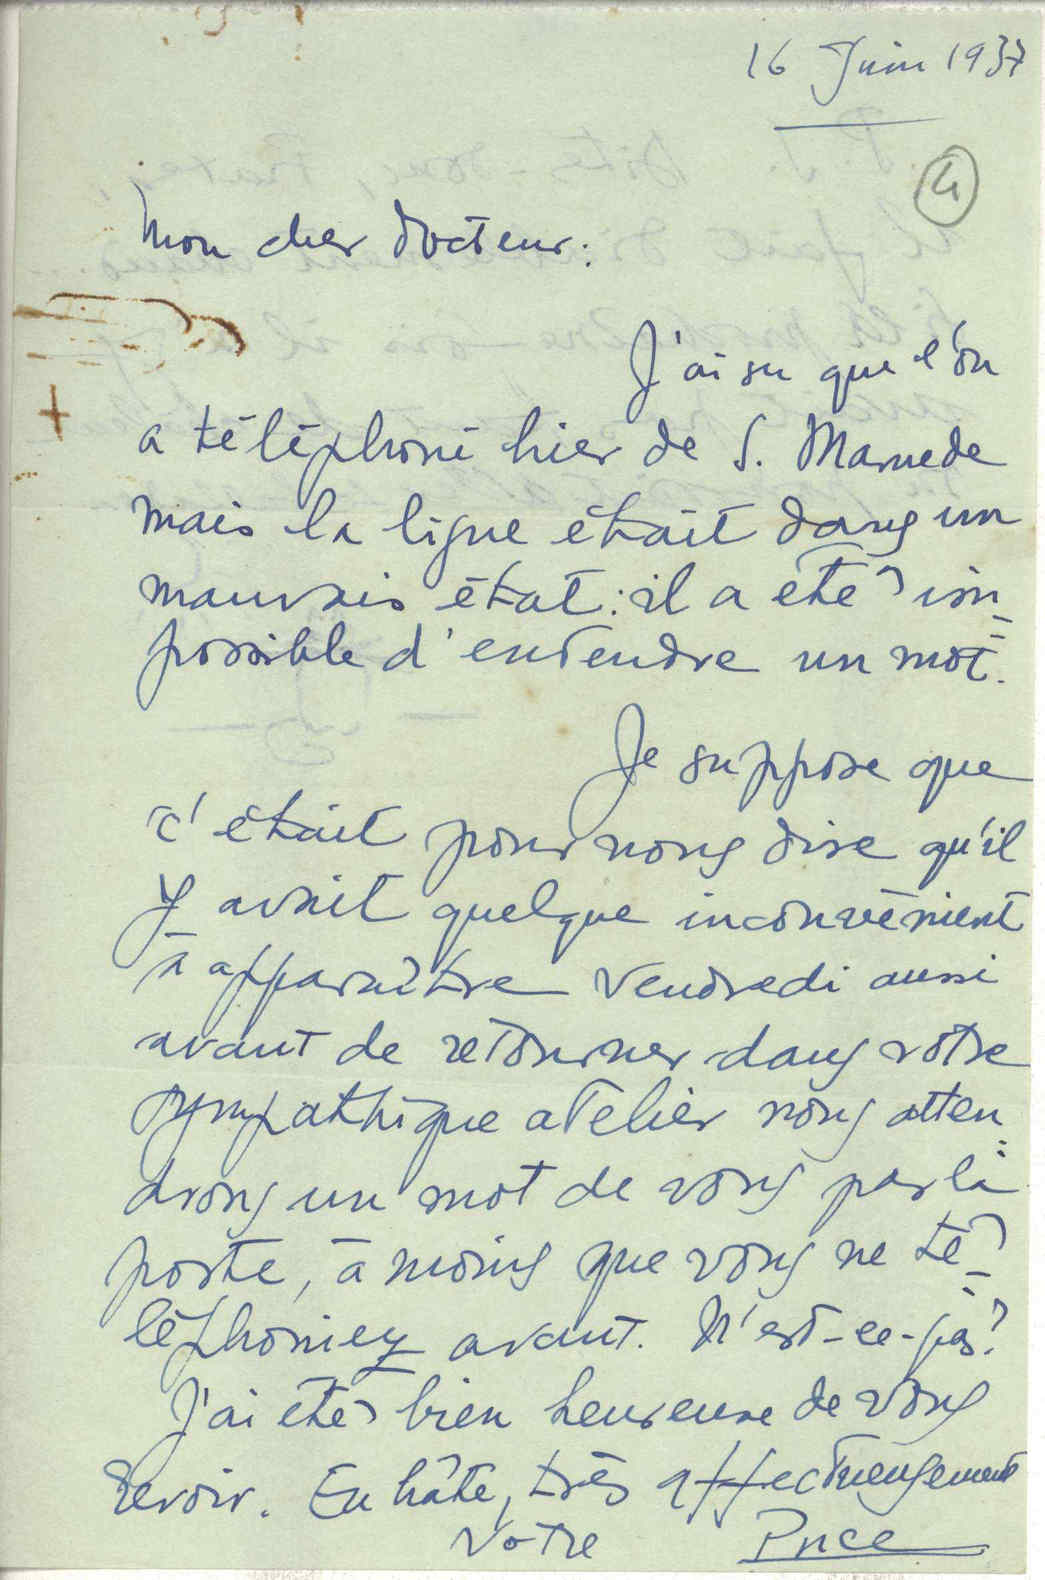 16 Juin 1937
4
Mon cher Docteur:
J'ai su que l'on
a téléphoné hier de S. Mamede
mais la ligne était dans un
mauvais état: il a été im=
possible d'entendre un mot.
Je suppose que
c'était pour nous dire qu'il
y avait quelque inconvénient
à apparaître Vendredi aussi
avant de retourner dans votre
sympathique atelier nous atten=
drons un mot de vous par la
poste, à moins que vous ne té=
léphoniez avant. N'est-ce-pas?
J'ai été bien heureuse de vous
revoir. En hâte, très affectueusement
Votre